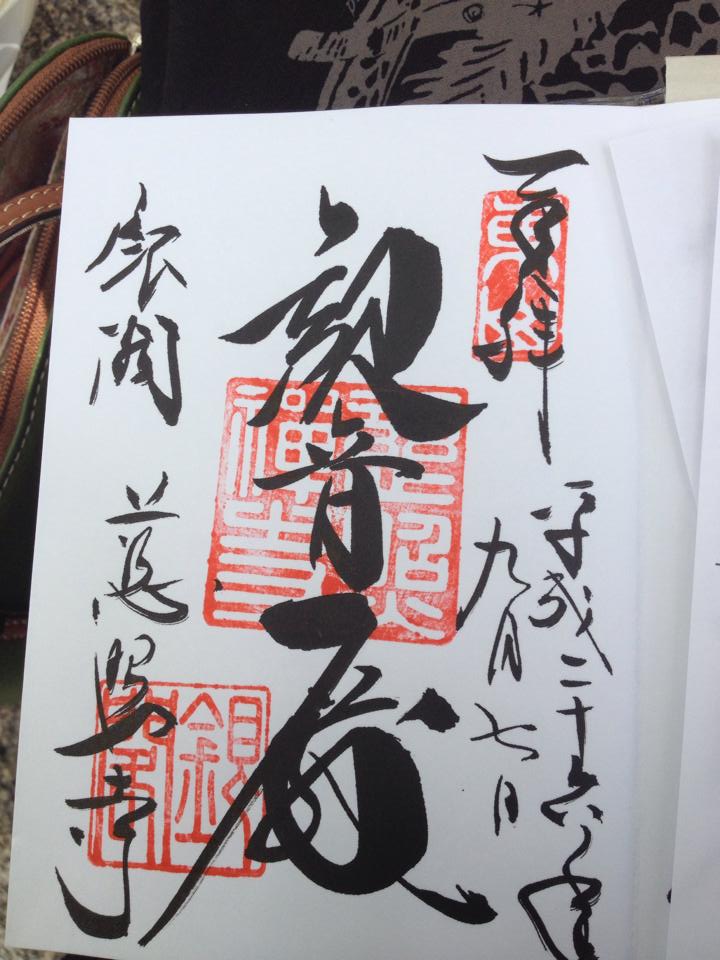 奉拝
平成二十六年
九月七日
観音殿
慈照
禪寺
銀閣 慈照寺
銀